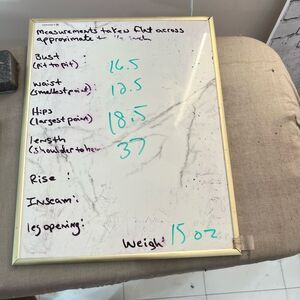 Measurements taken flat across
approximate to 1/2 inch
Bust:
(Pit to pit) 16.5
Waist
(smallest point): 12.5
Hips
(largest point) 18.5
length
(shoulder to hem) 37
Rise:
Inseam:
leg opening:
Weigh: 15 oz